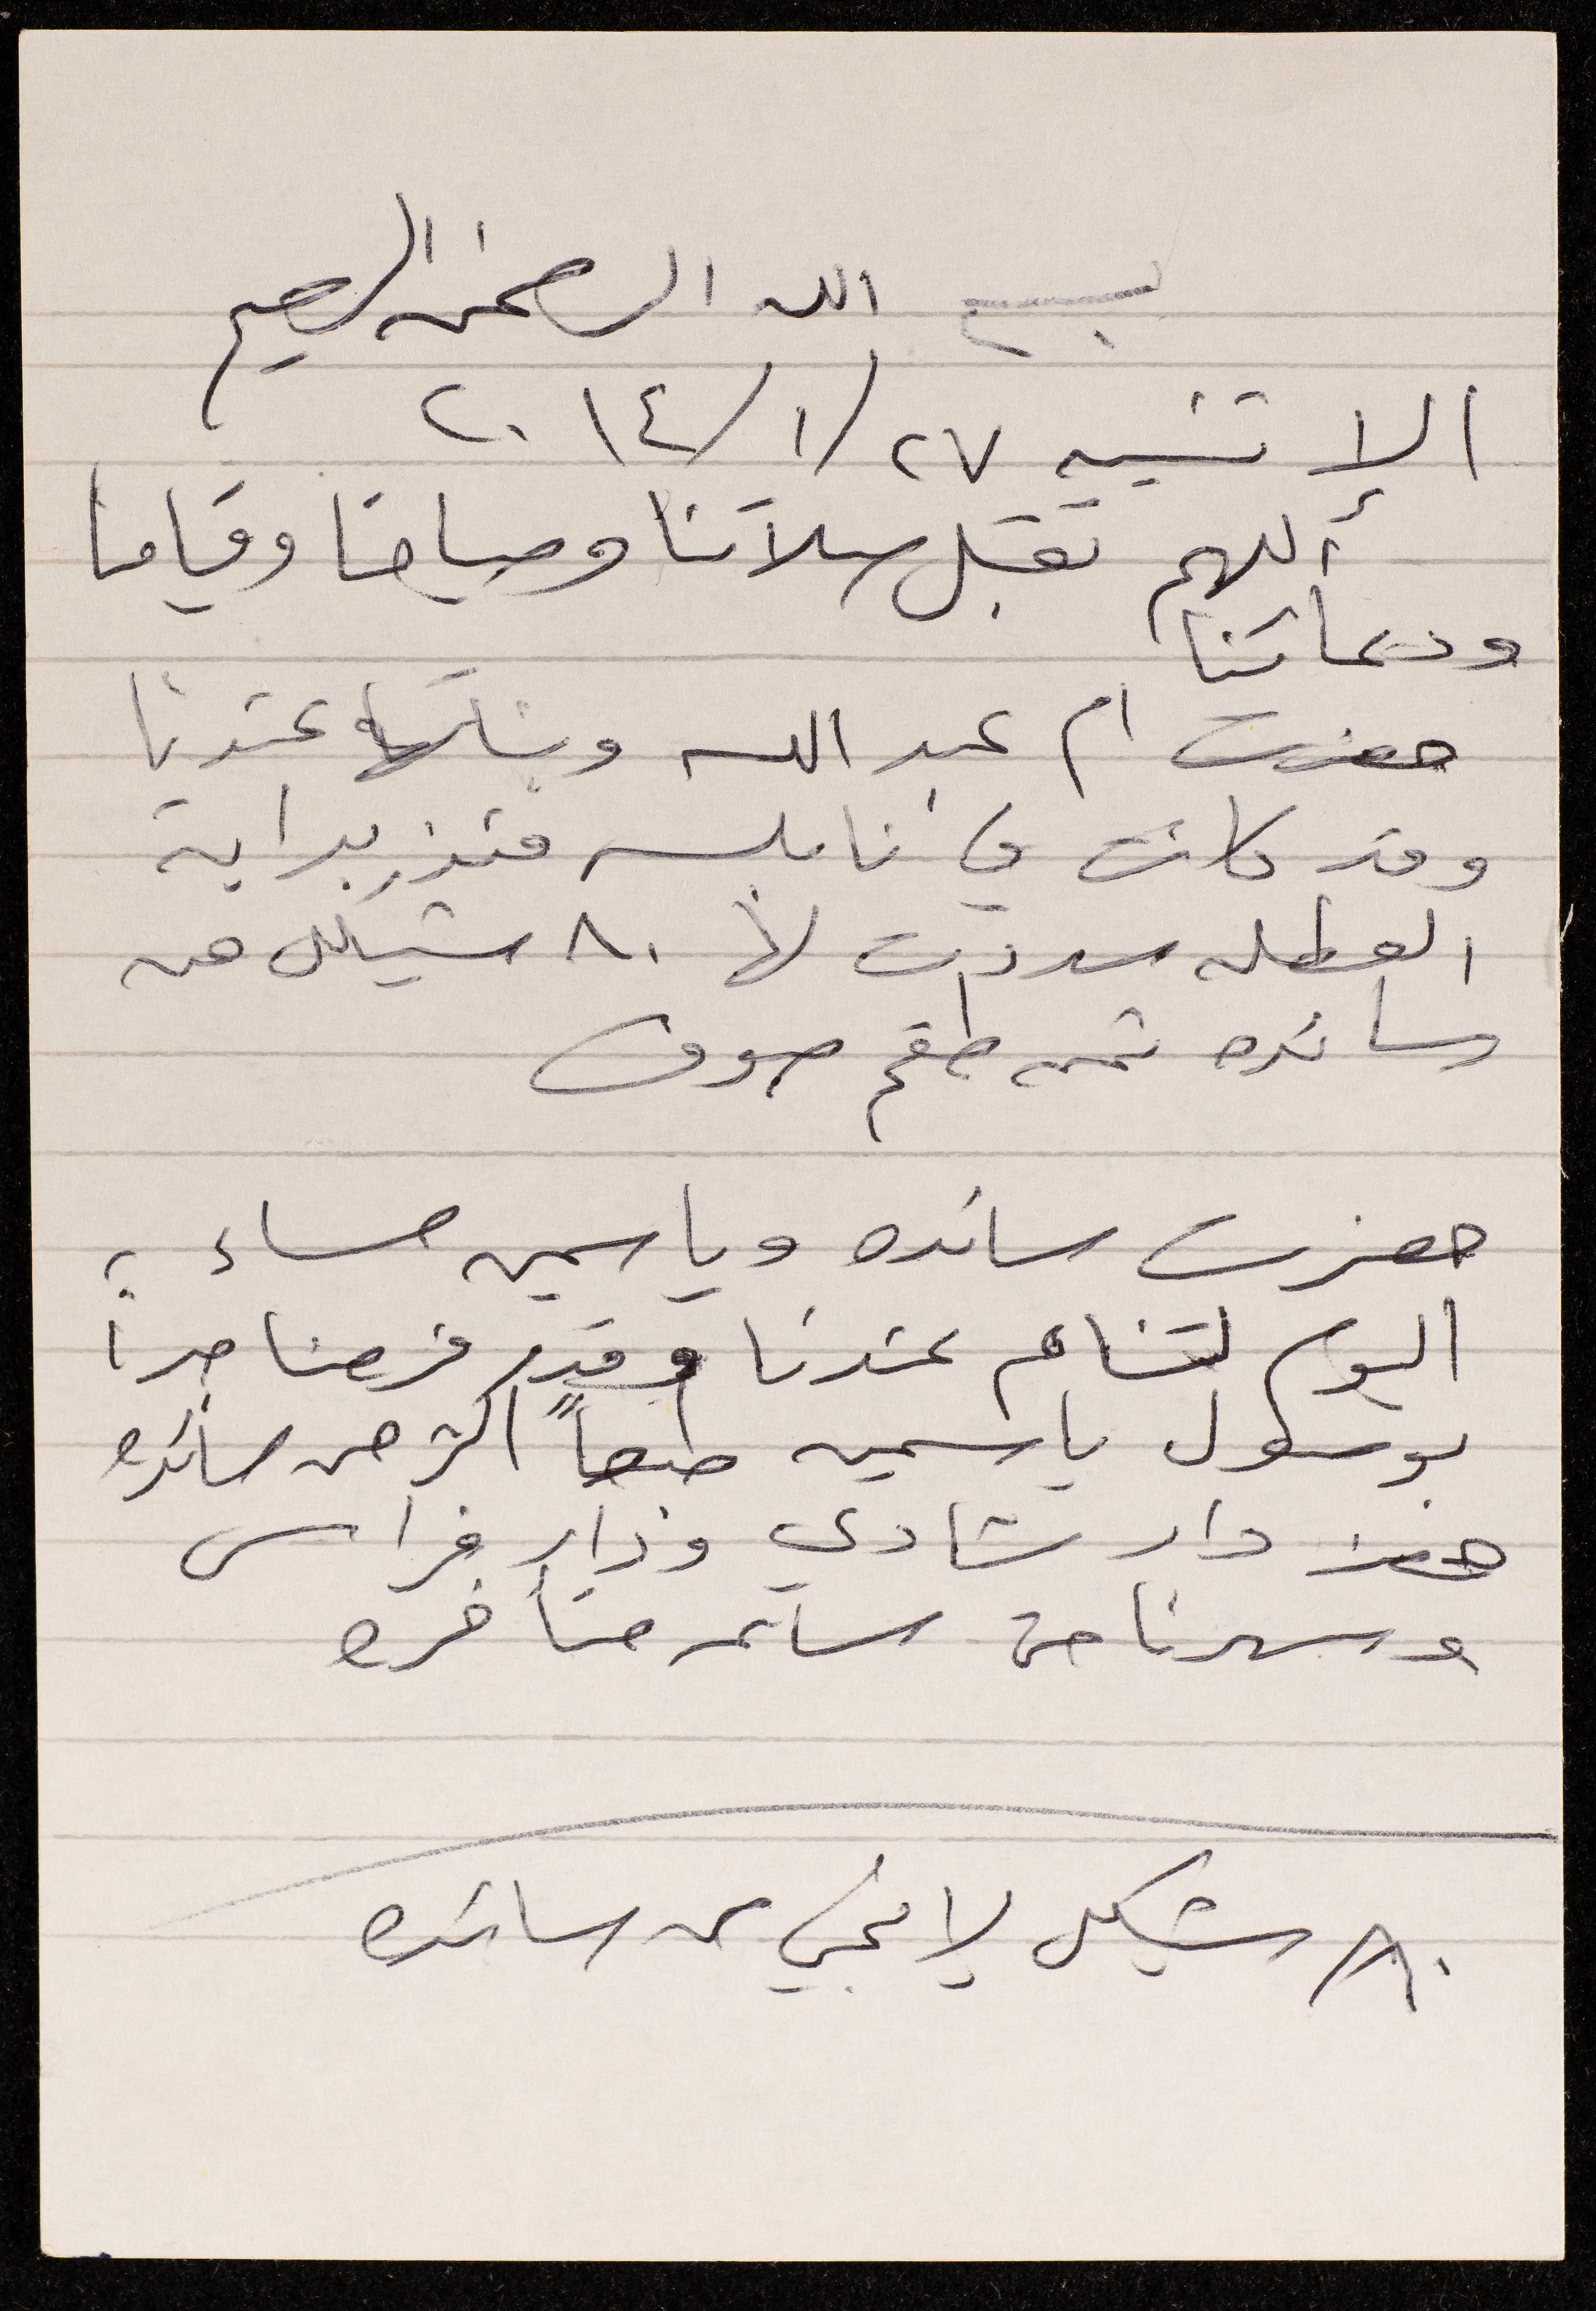 بسم الله الرحمن الرحيم
الاثنين ٢٧/١/٢٠١٤
أللهم تقبل صلاتنا وصيامنا وقيامنا
ودعائنا
حضرت ام عبد الله وبناتها عندنا
وقد كانت في نابلس منذ بداية
العطله سددت لها ٨٠ شيكل من
سائده ثمن طقم صوف
حضرت سائده وياسمين مساء
اليوم لتنام عندنا وقد فرحنا جداً
بوصول ياسمين طبعاً اكثر من سائده
حضر دار شادي وزار فراس
وسهرنا حتى ساعه متأخره
٨٠ شيكل لامجي من سائده